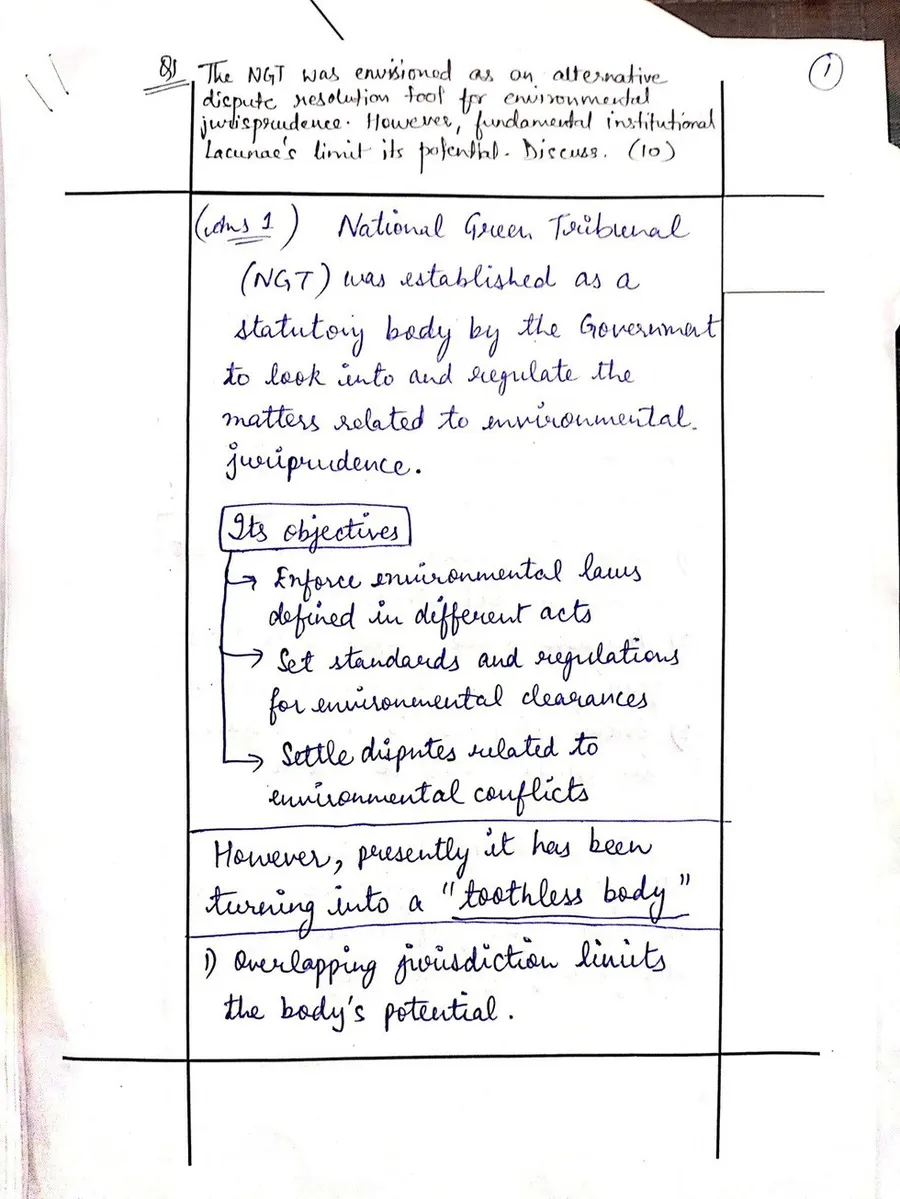 1
Q1 The NGT was envisioned as an alternative
dispute resolution tool for environmental
jurisprudence. However, fundamental institutional
Lacunae's limit its potential. Discuss. (10)
(Ans 1) National Green Tribunal
(NGT) was established as a
statutory body by the Government
to look into and regulate the
matters related to environmental
juriprudence.
Its objectives
→ Enforce environmental laws
defined in different acts
→ Set standards and regulations
for environmental clearances
→ Settle disputes related to
environmental conflicts
However, presently it has been
turning into a "toothless body"
1) Overlapping jurisdiction limits
the body's potential.